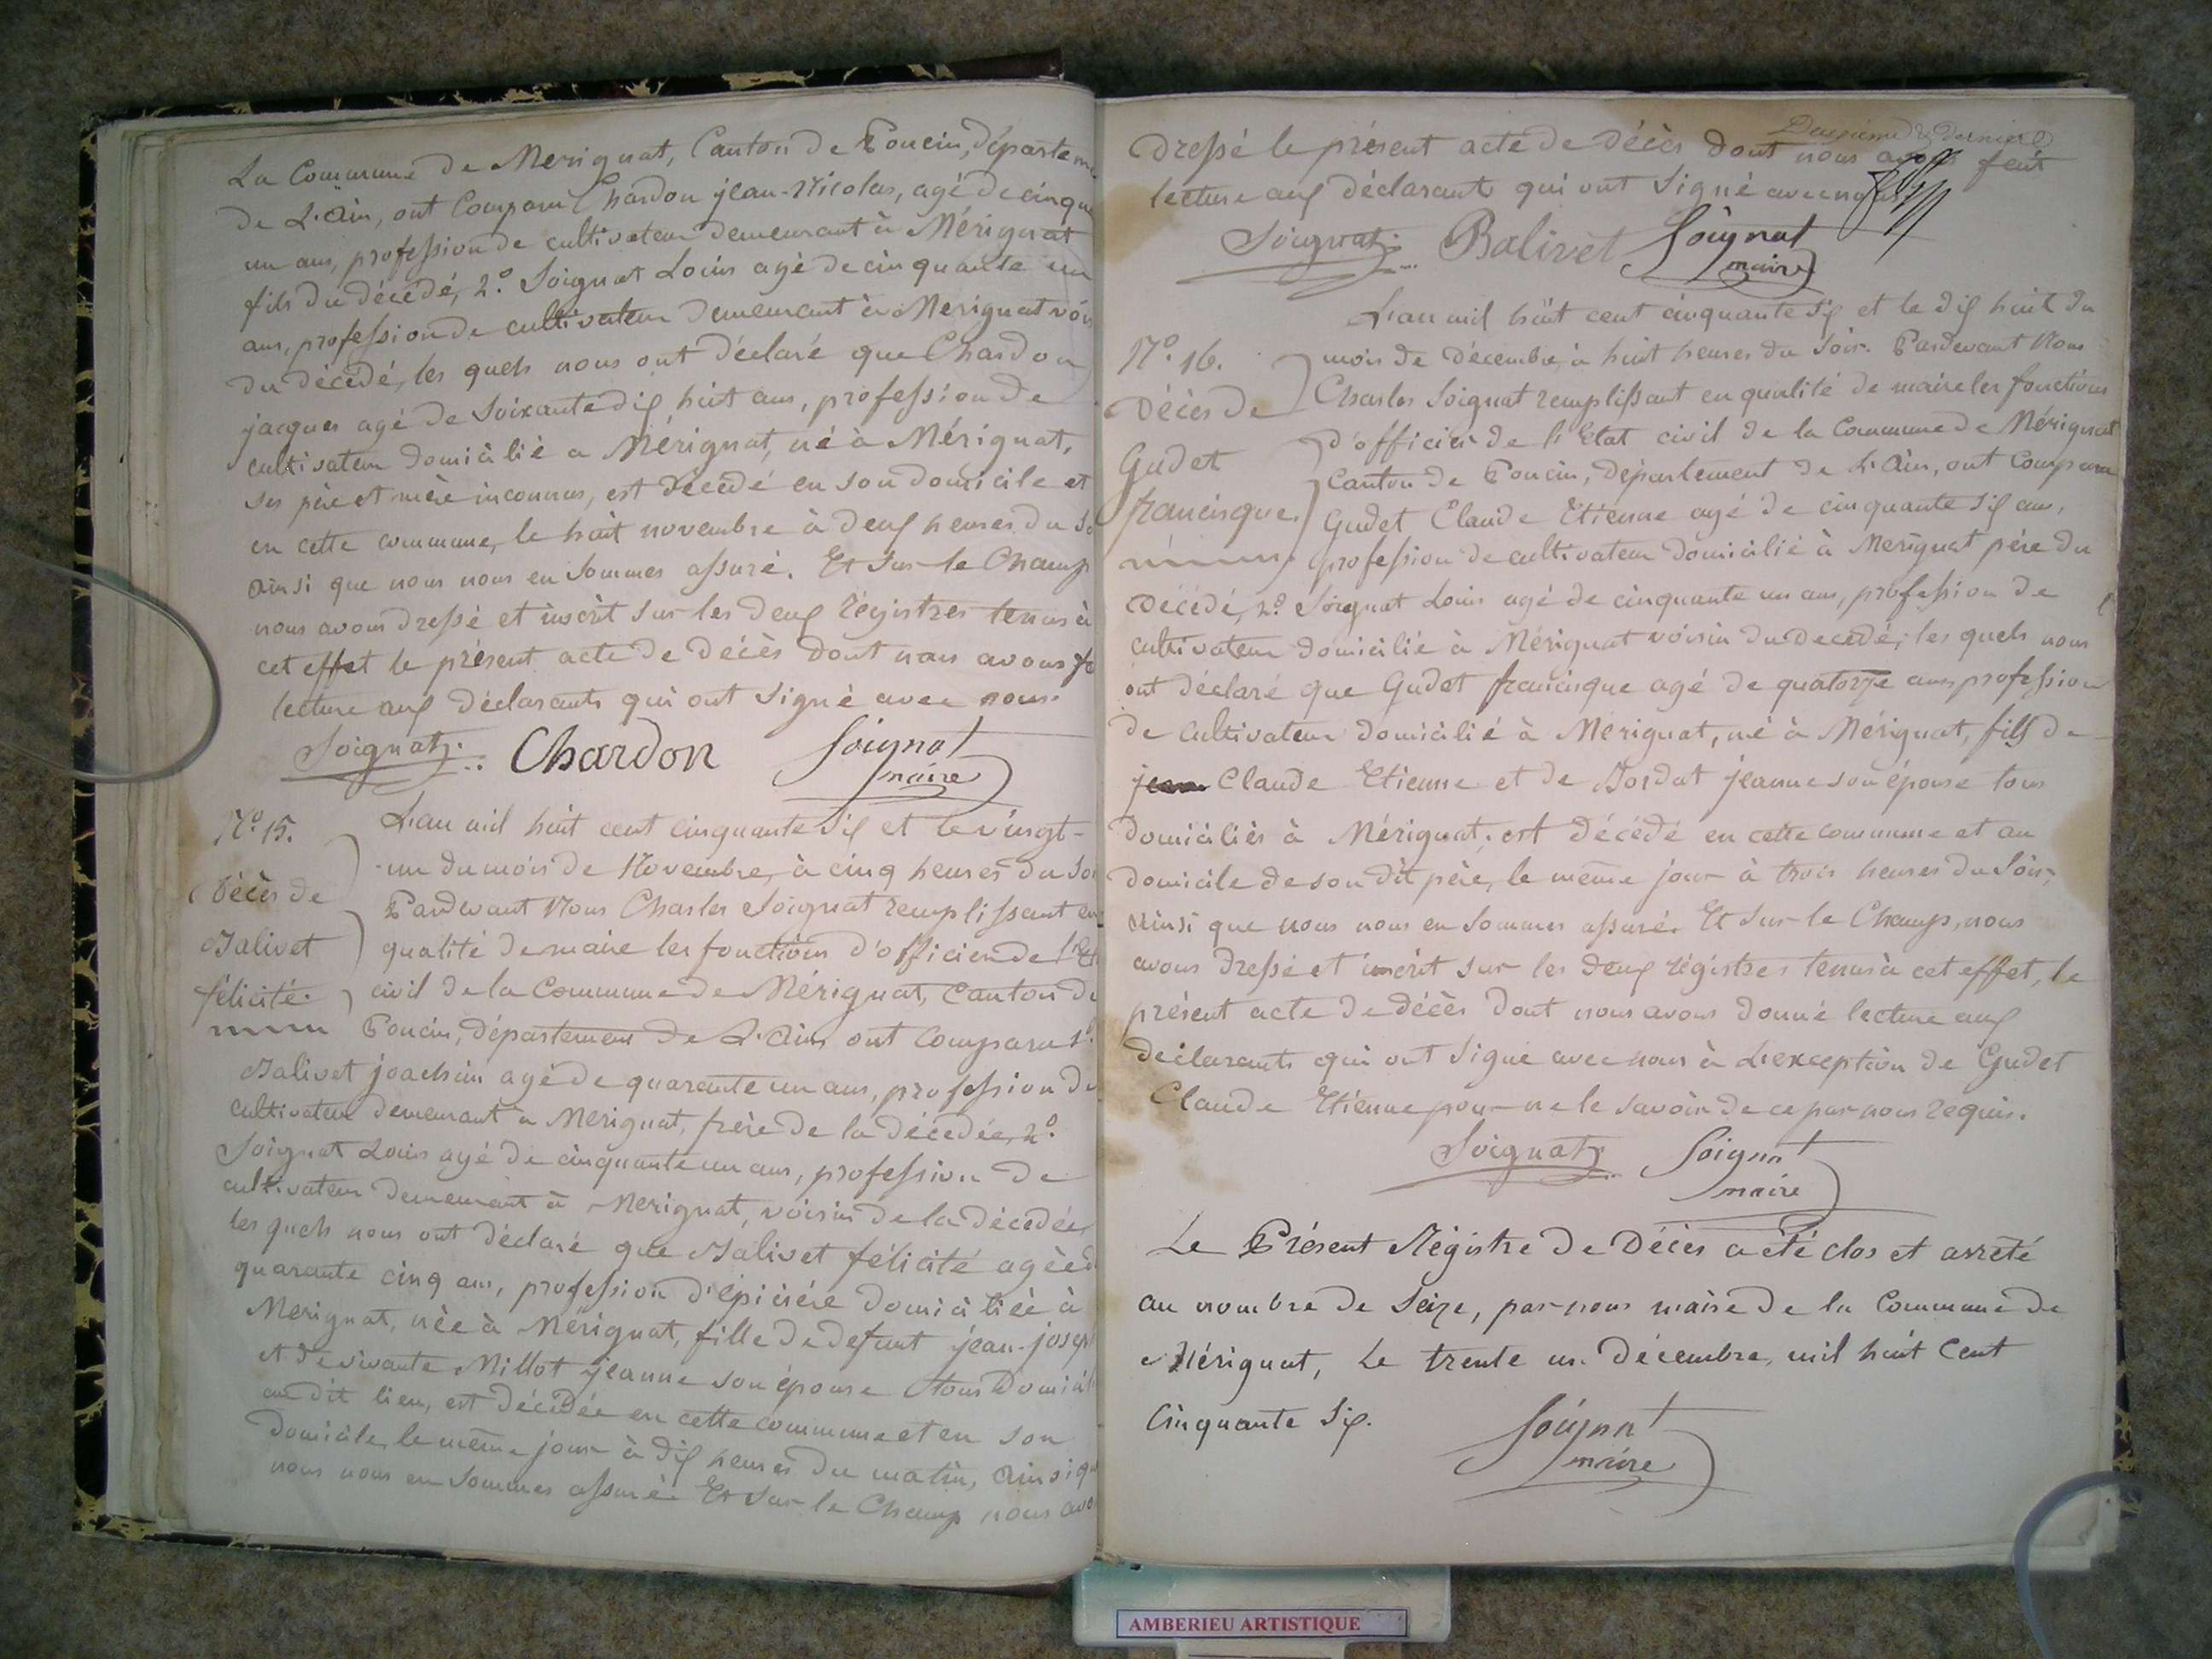 La Commune de Merignat, Canton de Poncin, départeme
de L'Ain, ont Comparu Chardon jean-Nicolas, agé de cinqu
un ans, profession de cultivateur demeurant à Mérignat
fils du décédé, 2.º Soignat Louis agé de cinquante un
ans, profession de cultivateur demeurant à Merignat vois
du décédé, les quels nous ont déclaré que Chardon
jacques agé de Soixante dix huit ans, profession de
cultivateur domicilié a Mérignat, né à Mérignat,
ses père et mère inconnus, est décédé en son domicile et
en cette commune, le huit novembre à deux heures du so
ainsi que nous nous en sommes assuré. Et sur-le Champ
nous avons dressé et inscrit sur les deux régistres tenus à
cet effet le présent acte de décès dont nous avons fa
lecture aux déclarants qui ont signé avec nous.
Soignat Chardon Soignat
maire
Nº 15.
Décès de
Balivet
félicité.
L'an mil huit cent cinquante six et le vingt-
un du mois de Novembre, à cinq heures du soi
Pardevant Nous Charles Soignat remplissant en
qualité de maire les fonctions d'officier de l'Et
civil de la Commune de Mérignat, Canton de
Poncin, département de L'Ain, ont Comparu 1º
Balivet joachim agé de quarante un ans, profession de
cultivateur demeurant a Merignat, frère de la décédée, 2º
Soignat Louis agé de cinquante un ans, profession de
cultivateur demeurant à Merignat, voisin de la décédée,
les quels nous ont déclaré que Balivet félicité agée d
quarante cinq ans, profession d'épicière domiciliée à
Merignat, née à Mérignat, fille de defunt jean-josep
et de vivante Millot jeanne son épouse tous domicil
au dit lieu, est décédée en cette commune et en son
domicile, le même jour à dix heures du matin, ainsi qu
nous nous en sommes assuré. Et sur-le Champ nous avo
Deuxième & dernier
dressé le présent acte de décès dont nous avons fait
lecture aux déclarants qui ont signé avec nous.
Soignat Balivet Soignat
maire
Nº 16.
Décès de
Gudet
francisque.
L'an mil huit cent cinquante six et le dix huit du
mois de Décembre, à huit heures du soir. Pardevant Nous
Charles Soignat remplissant en qualité de maire les fonctions
d'officier de l'Etat civil de la Commune de Mérignat
Canton de Poncin, département de L'Ain, ont Comparu
Gudet Claude Etienne agé de cinquante six ans,
profession de cultivateur domicilié à Merignat père du
décédé, 2º Soignat Louis agé de cinquante un ans, profession de
cultivateur domicilié à Mérignat voisin du decedé, les quels nous
ont déclaré que Gudet francisque agé de quatorze ans, profession
de Cultivateur domicilié à Merignat, né à Mérignat, fils de
jean Claude Etienne et de Bordat jeanne son épouse tous
domiciliés à Mérignat, est décédé en cette commune et au
domicile de son dit père, le même jour à trois heures du soir,
ainsi que nous nous en sommes assuré. Et sur-le Champ, nous
avons dressé et inscrit sur les deux régistres tenus à cet effet, le
présent acte de décès dont nous avons donné lecture aux
déclarants qui ont signé avec nous à L'exception de Gudet
Claude Etienne pour ne le savoir de ce par nous requis.
Soignat Soignat
maire
Le Présent Régistre de Décès a été clos et arreté
au nombre de Seize, par nous maire de la Commune de
Mérignat, Le trente un Décembre, mil huit Cent
Cinquante six.
Soignat
maire
AMBERIEU ARTISTIQUE